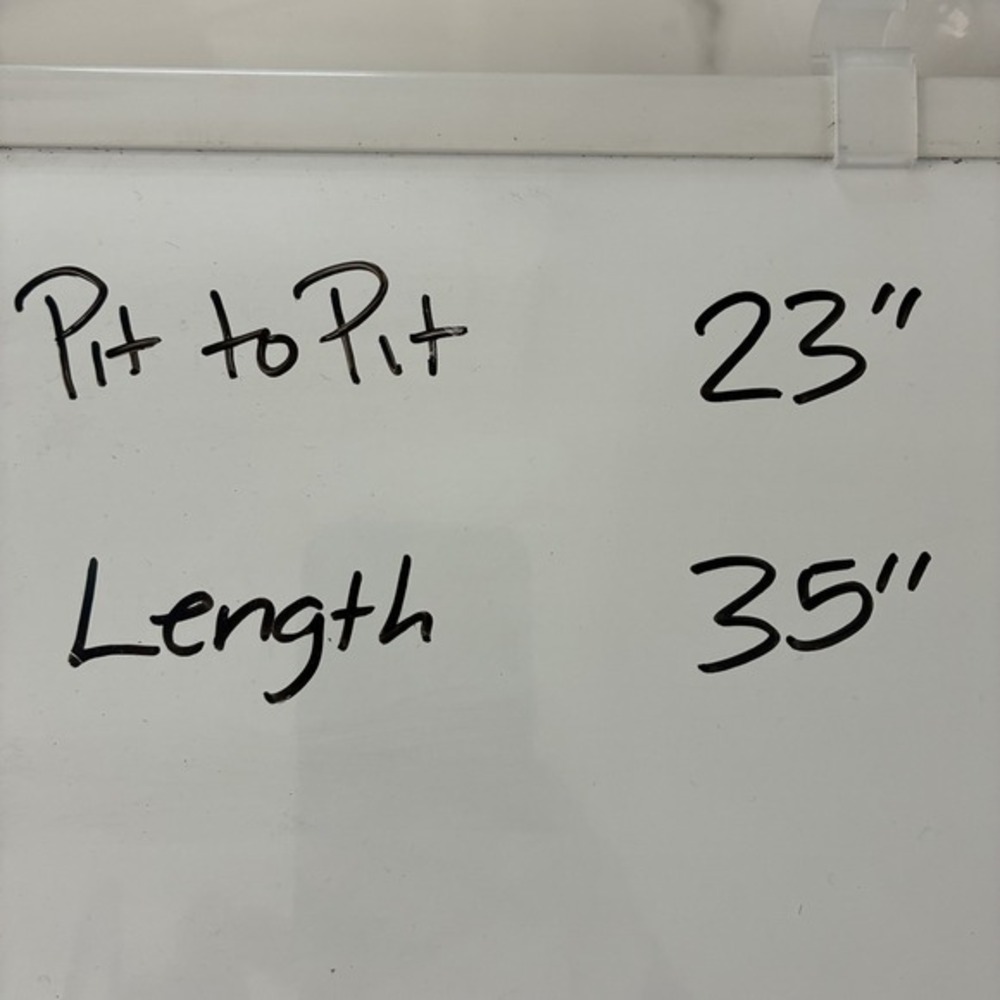 Pit to Pit 23"
Length 35"